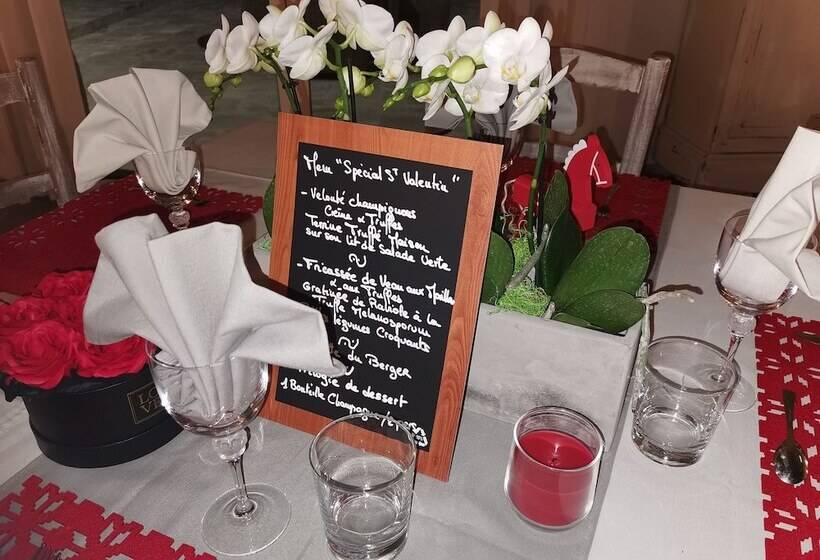 Menu "Spécial St Valentin"
- Velouté champignons
Crème à Truffes
Terrine Truffé Maison
sur son lit de Salade Verte
- Fricassée de Veau aux Morilles
& aux Truffes
Gratinée de Raviole à la
Truffe Melanosporum
légumes Croquants
du Berger
Trilogie de dessert
1 Bouteille Champagne
LO
VE